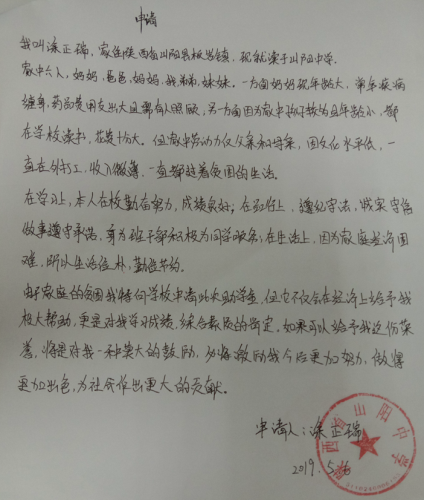 申请
我叫涂正瑞，家住陕西省山阳县板岩镇，现就读于山阳中学。
家中六人，奶奶，爸爸，妈妈，我弟弟，妹妹。一方面奶奶现年龄大，常年疾病
缠身，药品费用支出大且需有人照顾，另一方面因为家中孩子较多且年龄小，都
在学校读书，花费十分大。但家中劳动力仅父亲和母亲，因文化水平低，一
直在外打工，收入微薄，一直都过着贫困的生活。
在学习上，本人在校勤奋努力，成绩良好；在班级上，遵纪守法，诚实守信
做事遵守承诺，身为班干部积极为同学服务；在生活上，因为家庭经济困
难，所以生活俭朴，勤俭节约。
由于家庭的贫困我特向学校申请此次助学金，但它不仅会在经济上给予我
极大帮助，更是对我学习成绩，综合素质的肯定，如果可以给予我这份荣
誉，将是对我一种莫大的鼓励，必将激励我今后更加努力，做得
更加出色，为社会作出更大的贡献。
申请人：涂正瑞
2019.5.
陕西省山阳中学